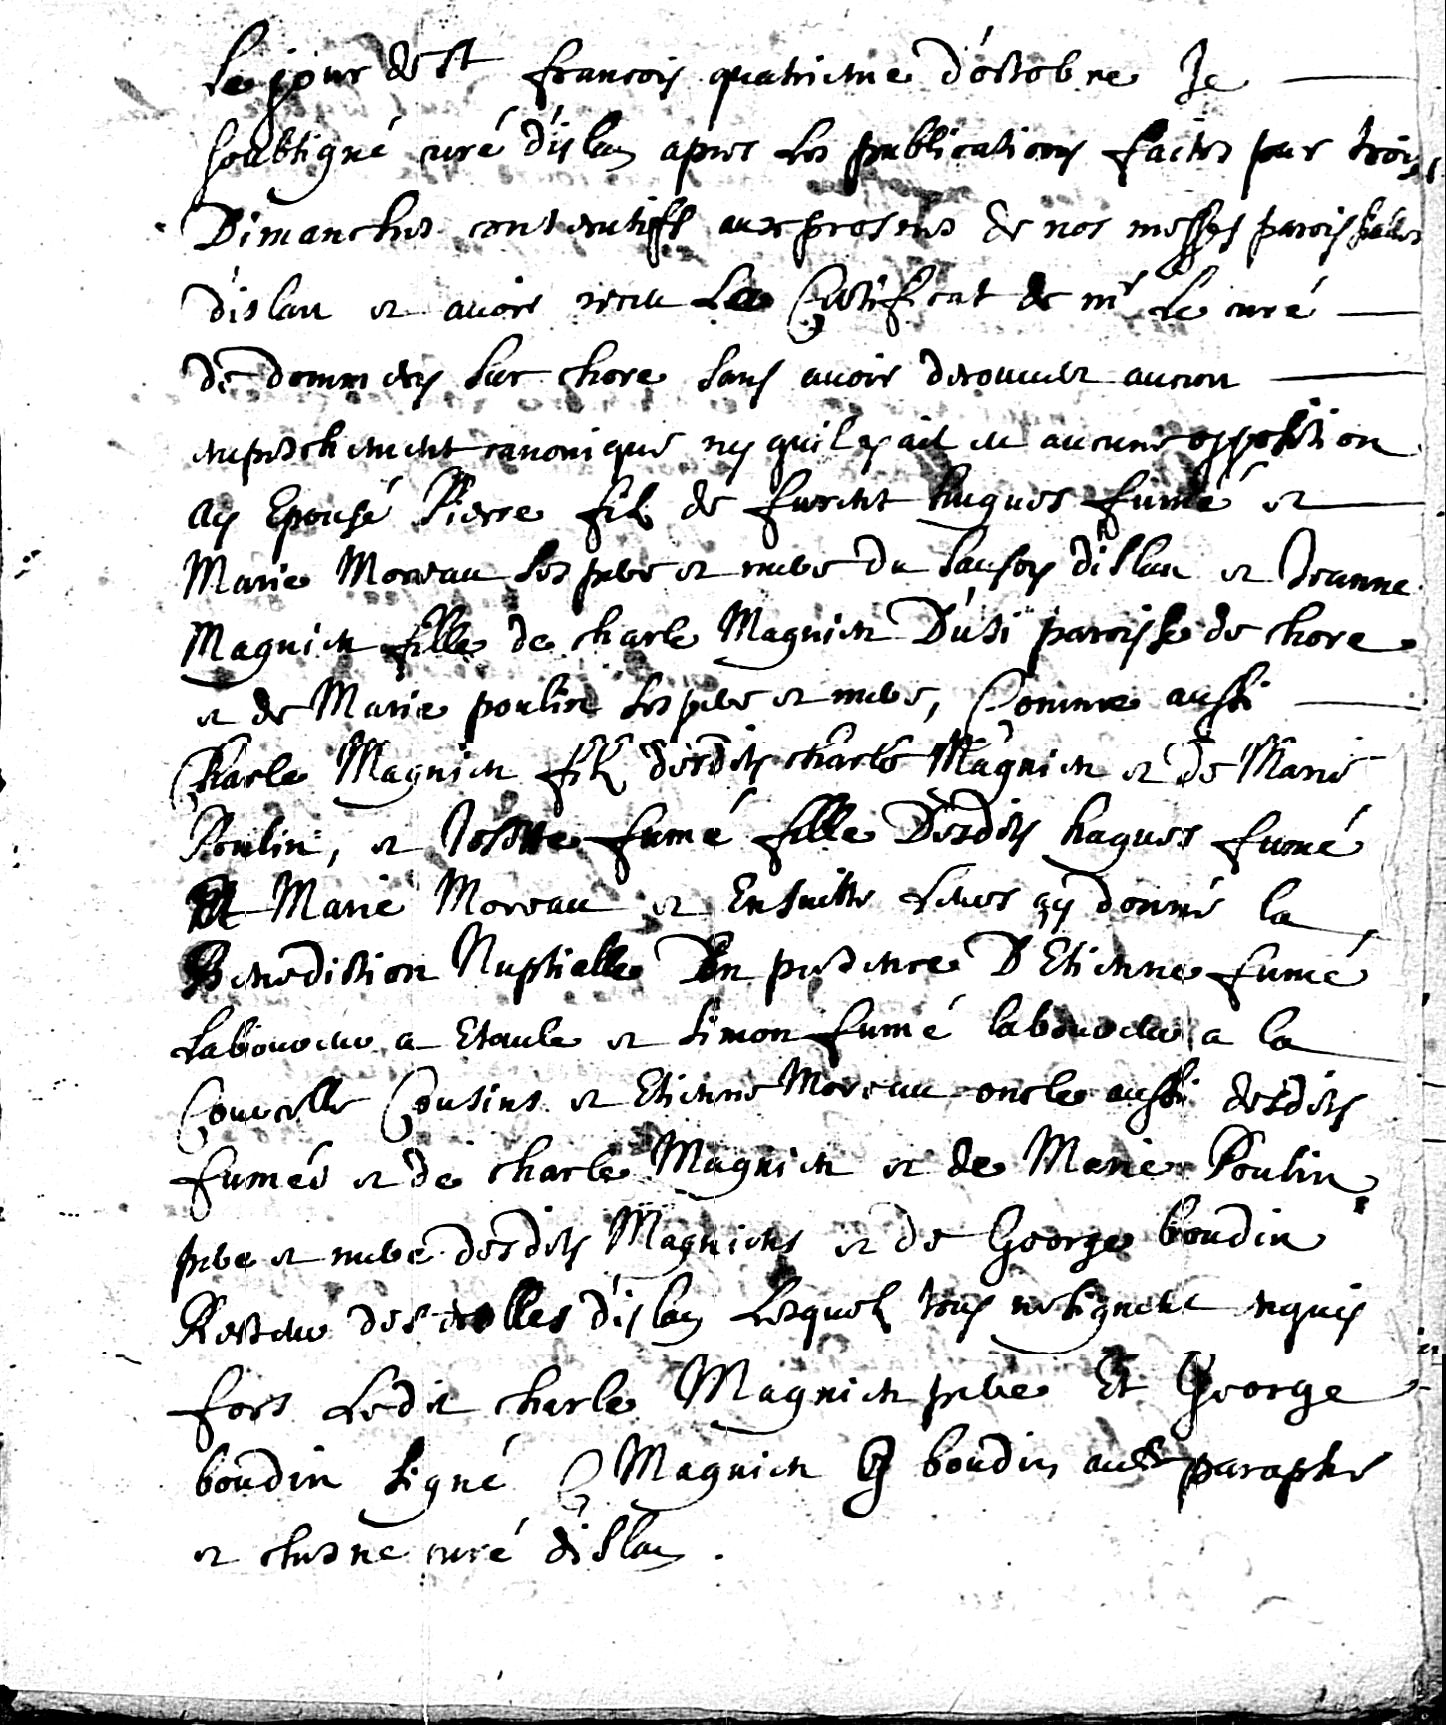 Le jour de St francois quatrieme d'octobre Je
soubsigné curé d'islan apres les publications faites par trois
Dimanches consecutifs aux prosnes de nos messes paroissialles
d'islan et avoir receu Le Certificat de mr Le curé
de dommecy sur chore sans avoir decouvert aucun
empeschement canonique ny quil y ait eu aucune opposition
ay Epousé Pierre fils de furent hugues fumé et
Marie Moreau ses pere et mere du saulsoy dislan et Jeanne
Magnien fille de charle Magnien D'usi paroisse de chore
et de Marie poulin ses pere et mere, Comme aussi
Charle Magnien fils desdits charle Magnien et de Marie
Poulin, et fumé fille Desdits hugues fumé
Et Marie Moreau et Ensuitte Leurs ay donné la
Benediction Nuptialle En presence D'Etienne fumé
Laboureur a Etaule et simon fumé laboureur a la
Courelle Cousins et Etienne Moreau oncle aussi desdits
fumés et de charle Magnien et de Marie Poulin
pere et mere desdits Magniens et de George boudin
Recteur des écolles d'islan Lesquels tous ne signent enquis
fors Ledit charle Magnien pere Et George
boudin signé C Magnien G boudin avec paraphe
et chesne curé dislan .